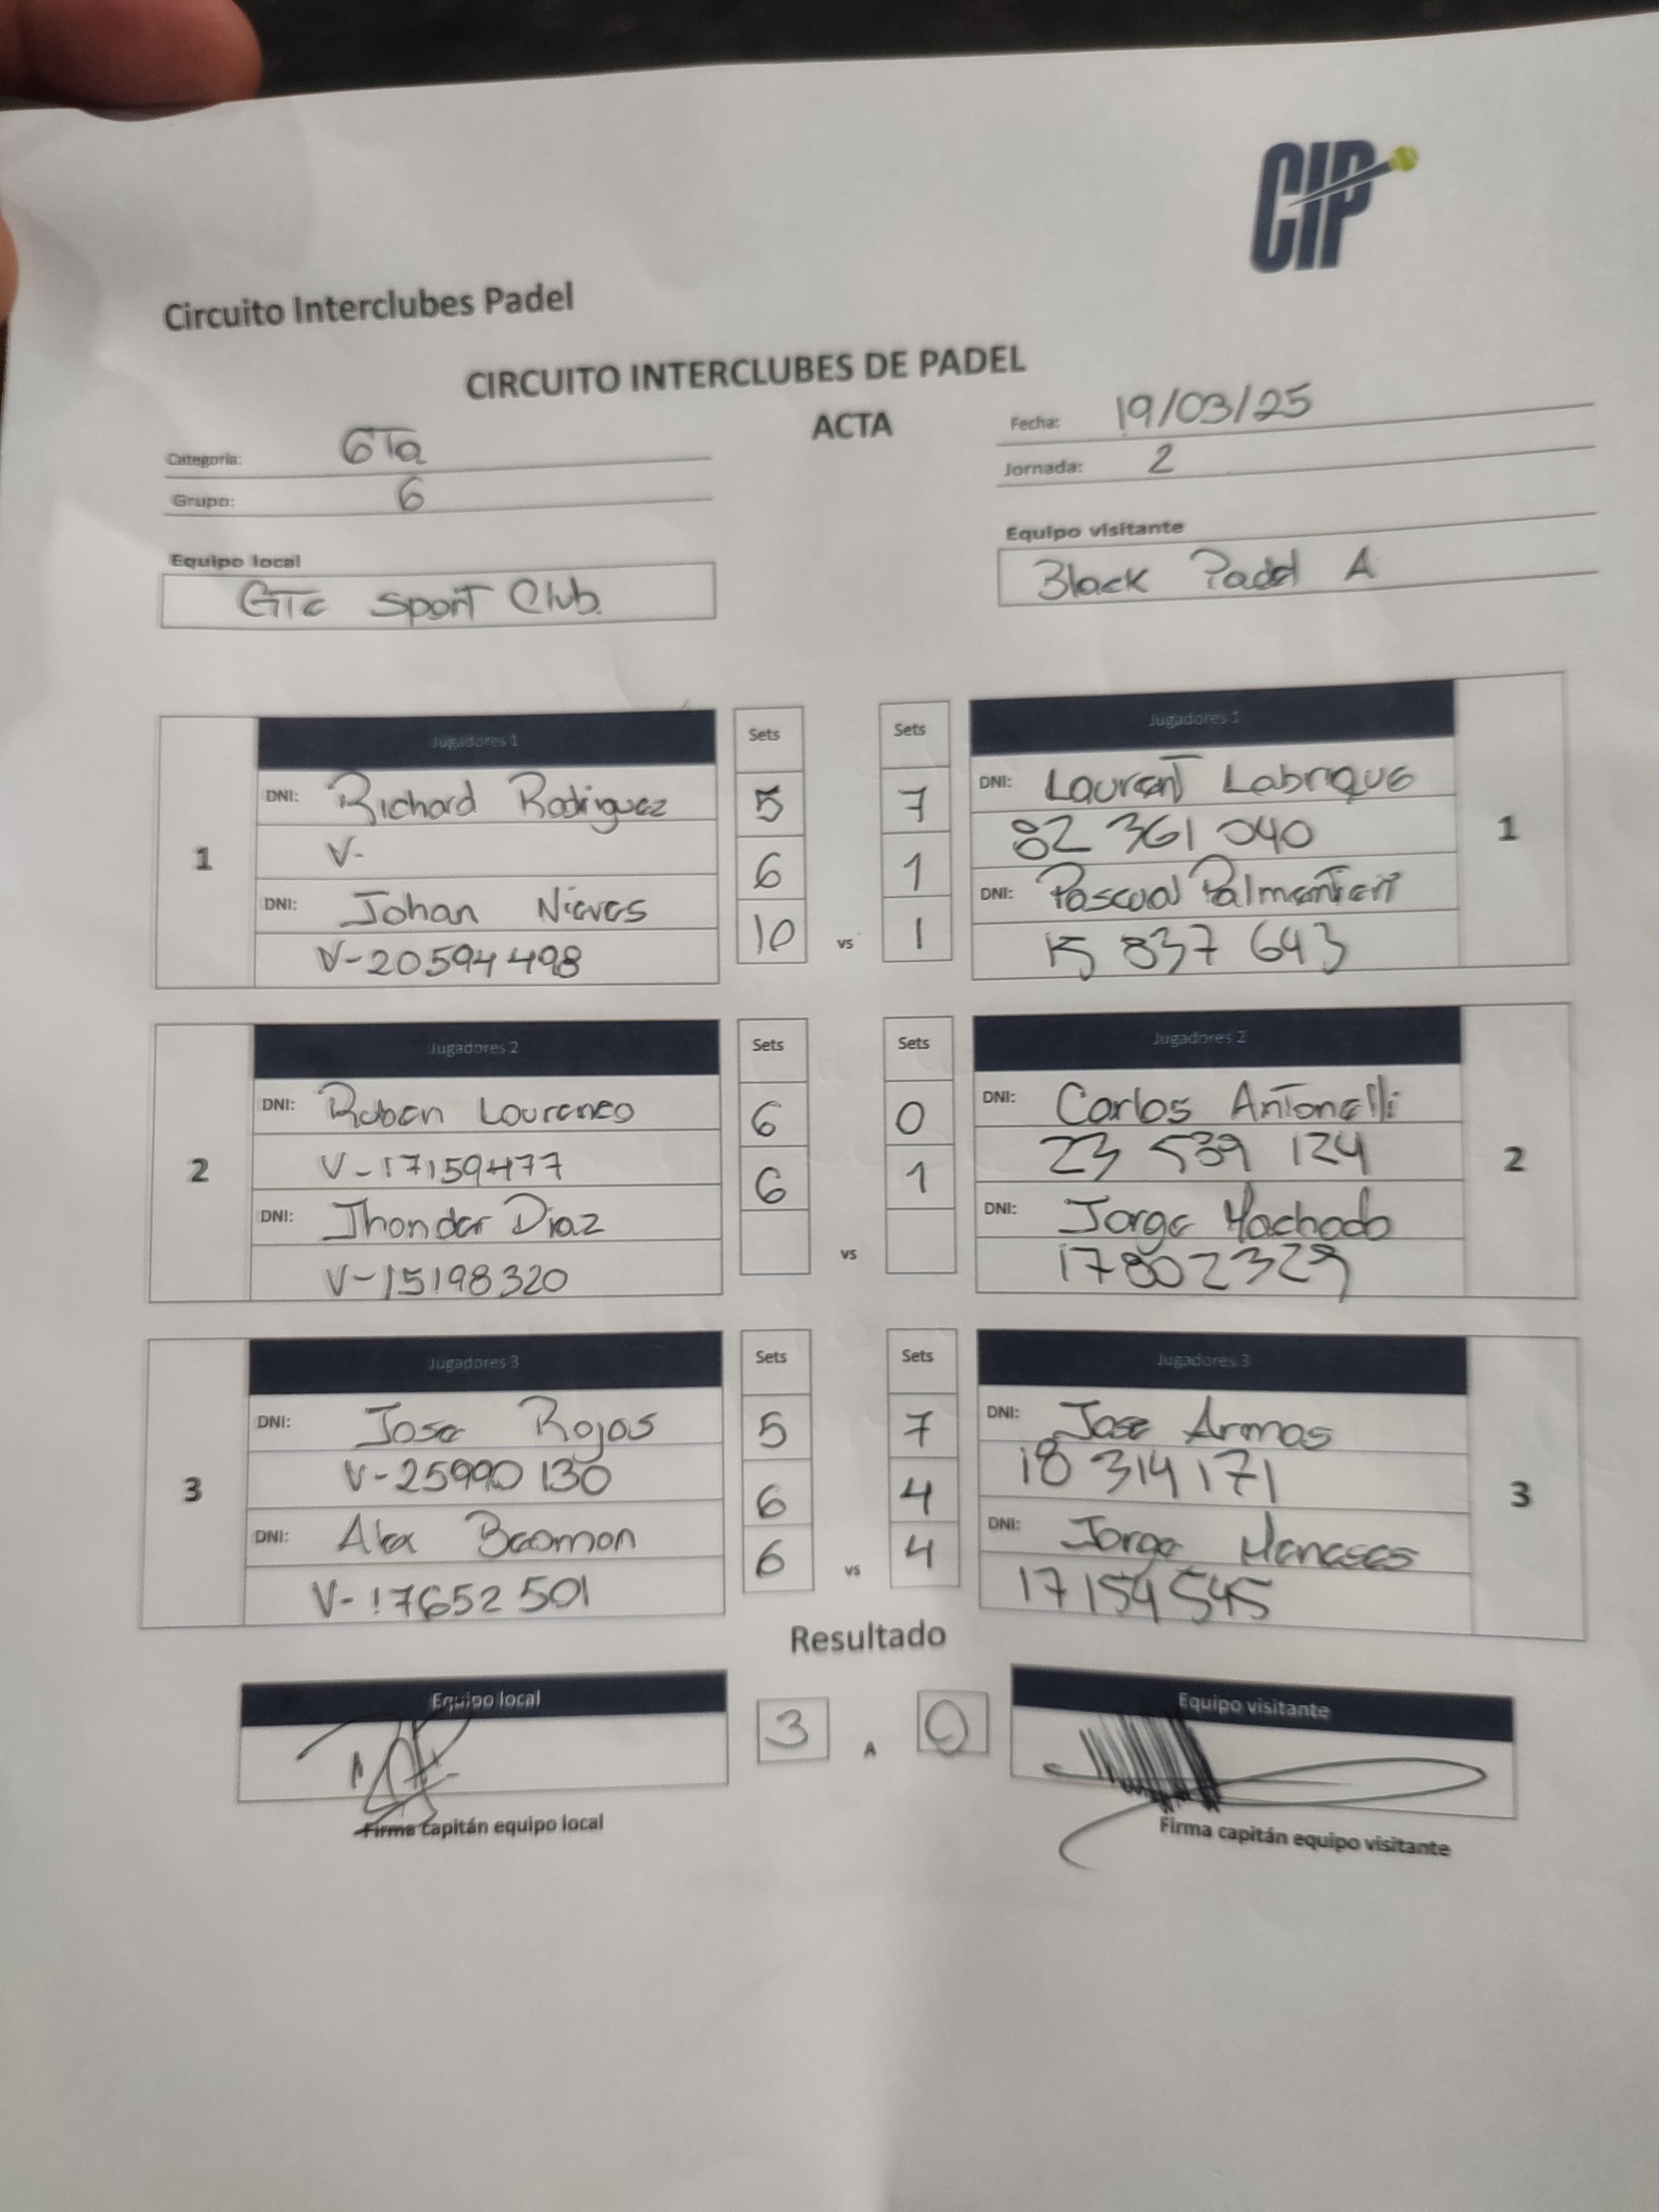 CIP
Circuito Interclubes Padel
CIRCUITO INTERCLUBES DE PADEL
ACTA
Categoria: 6Ta
Grupo: 6
Fecha: 19/03/25
Jornada: 2
Equipo local
GTc Sport Club.
Equipo visitante
Black Padel A
1
Jugadores 1
DNI: Richard Rodriguez
V-
DNI: Johan Nieves
V-20594498
Sets
5
6
10
vs
Sets
7
1
1
Jugadores 1
DNI: Laurent Labrique
82 361 040
DNI: Pascual Palmentieri
15 837 643
1
2
Jugadores 2
DNI: Ruben Lourenco
V-17159477
DNI: Jhonder Diaz
V-15198320
Sets
6
6
vs
Sets
0
1
Jugadores 2
DNI: Carlos Antonelli
23 539 124
DNI: Jorge Machado
17802329
2
3
Jugadores 3
DNI: Jose Rojas
V-25990130
DNI: Alex
V-17652501
Sets
5
6
6
vs
Sets
7
4
4
Jugadores 3
DNI: Jose Armas
18 314 171
DNI: Jorge Meneses
17154545
3
Resultado
Equipo local
3 A 0
Equipo visitante
Firma capitán equipo local
Firma capitán equipo visitante